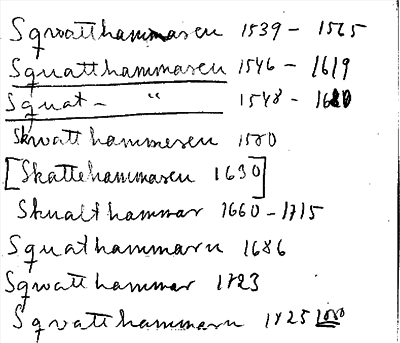 Sqwatthammaren 1539 - 1565
Squatthammaren 1546 - 1619
Squat - " 1548 - 1680
Skwatthammeren 1580
[Skattehammaren 1630]
Skualthammar 1660 - 1715
Squathammarn 1686
Sqwatthammar 1723
Sqvatthammarn 1825